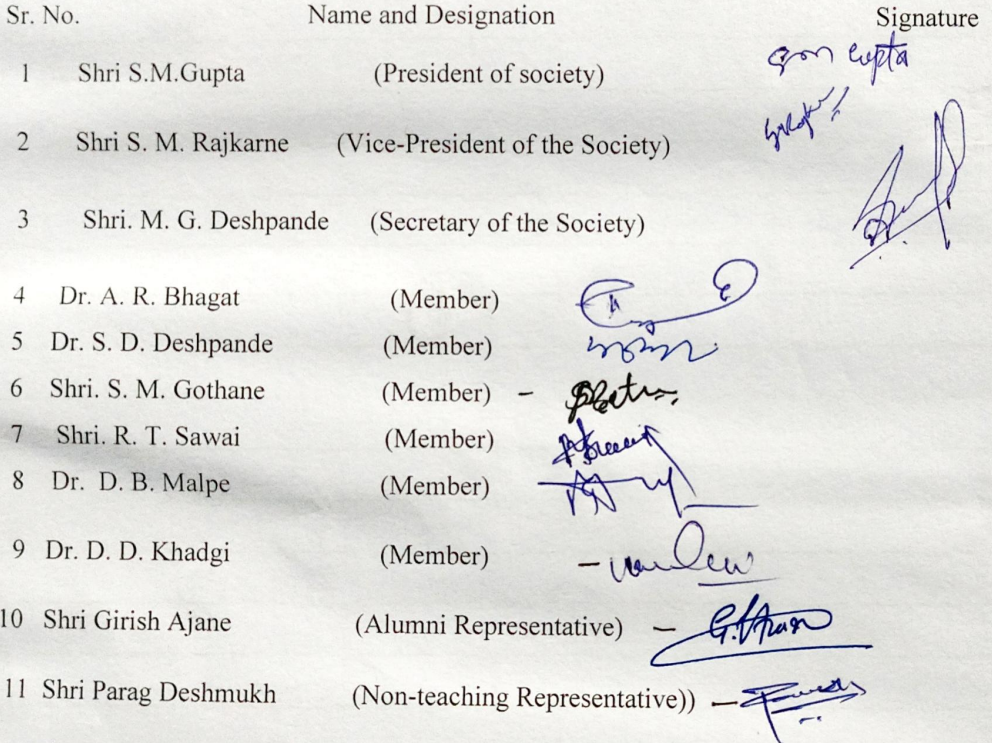 Sr. No. Name and Designation Signature
1 Shri S.M.Gupta (President of society) Gupta
2 Shri S. M. Rajkarne (Vice-President of the Society)
3 Shri. M. G. Deshpande (Secretary of the Society)
4 Dr. A. R. Bhagat (Member)
5 Dr. S. D. Deshpande (Member)
6 Shri. S. M. Gothane (Member) -
7 Shri. R. T. Sawai (Member)
8 Dr. D. B. Malpe (Member)
9 Dr. D. D. Khadgi (Member) -
10 Shri Girish Ajane (Alumni Representative) -
11 Shri Parag Deshmukh (Non-teaching Representative)) -